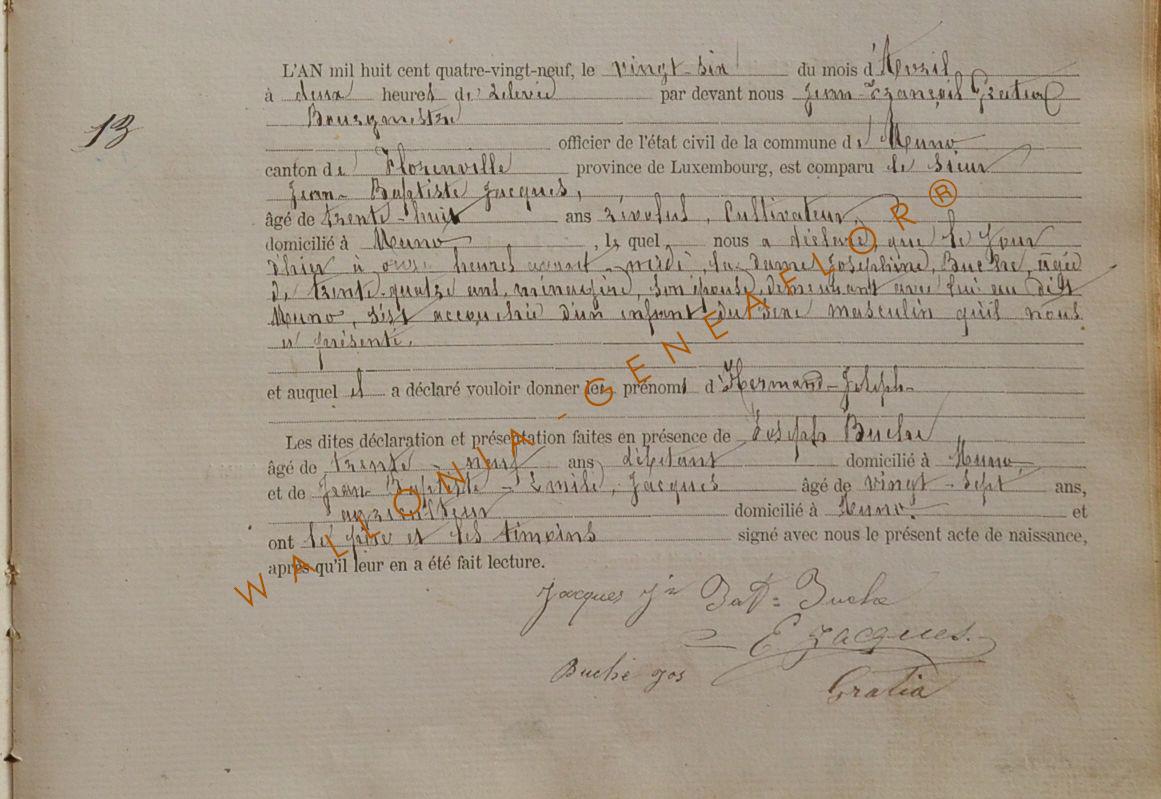 L'AN mil huit cent quatre-vingt-neuf, le vingt-six du mois d'Avril
à deux heures de relevée par devant nous Jean-François Gratia
Bourgmestre
13
officier de l'état civil de la commune de Muno
canton de Florenville province de Luxembourg, est comparu le sieur
Jean-Baptiste Jacques,
âgé de trente-huit ans révolus, Cultivateur,
domicilié à Muno, lequel nous a déclaré que le jour
d'hier à onze heures avant-midi, la dame Joséphine, Buche, âgée
de trente-quatre ans, ménagère, son épouse, demeurant avec lui au dit
Muno, s'est accouchée d'un enfant du sexe masculin qu'il nous
a présenté,
et auquel il a déclaré vouloir donner les prénoms d'Hermand-Joseph-
Les dites déclaration et présentation faites en présence de Joseph Buche
âgé de trente-neuf ans débitant domicilié à Muno,
et de Jean-Baptiste-Emile, Jacques âgé de vingt-sept ans,
agriculteur domicilié à Muno. et
ont le père et les témoins signé avec nous le présent acte de naissance,
après qu'il leur en a été fait lecture.
Jacques Jn Bat= Buche
E Jacques.
Buché jos
Gratia
WALLONIA-GENEAFLOR®